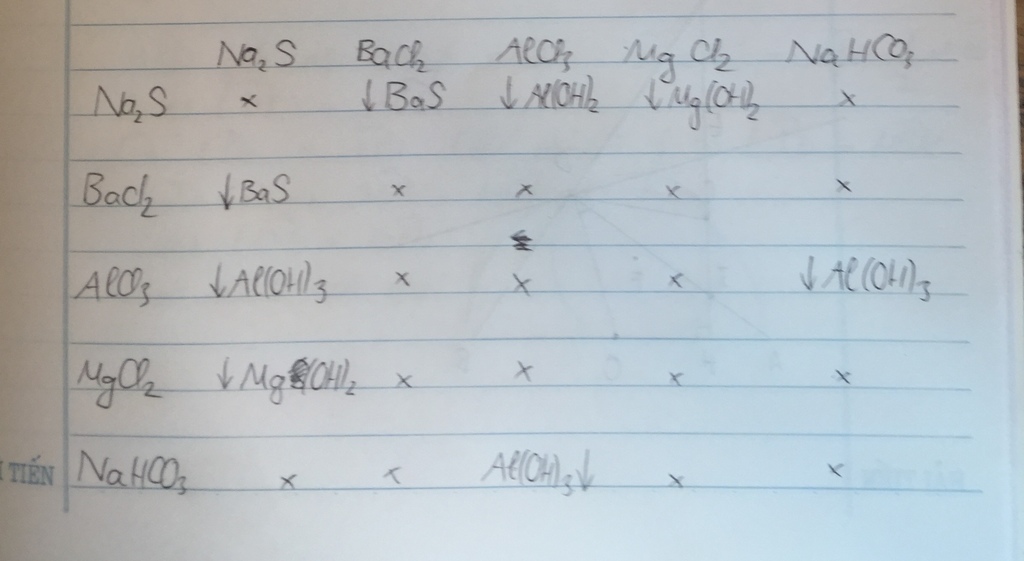 Na₂S BaCl₂ AlCl₃ MgCl₂ NaHCO₃
Na₂S × ↓BaS ↓Al(OH)₂ ↓Mg(OH)₂ ×
BaCl₂ ↓BaS × × × ×
AlCl₃ ↓Al(OH)₃ × × × ↓Al(OH)₃
MgCl₂ ↓Mg(OH)₂ × × × ×
TIẾN NaHCO₃ × × Al(OH)₃↓ × ×